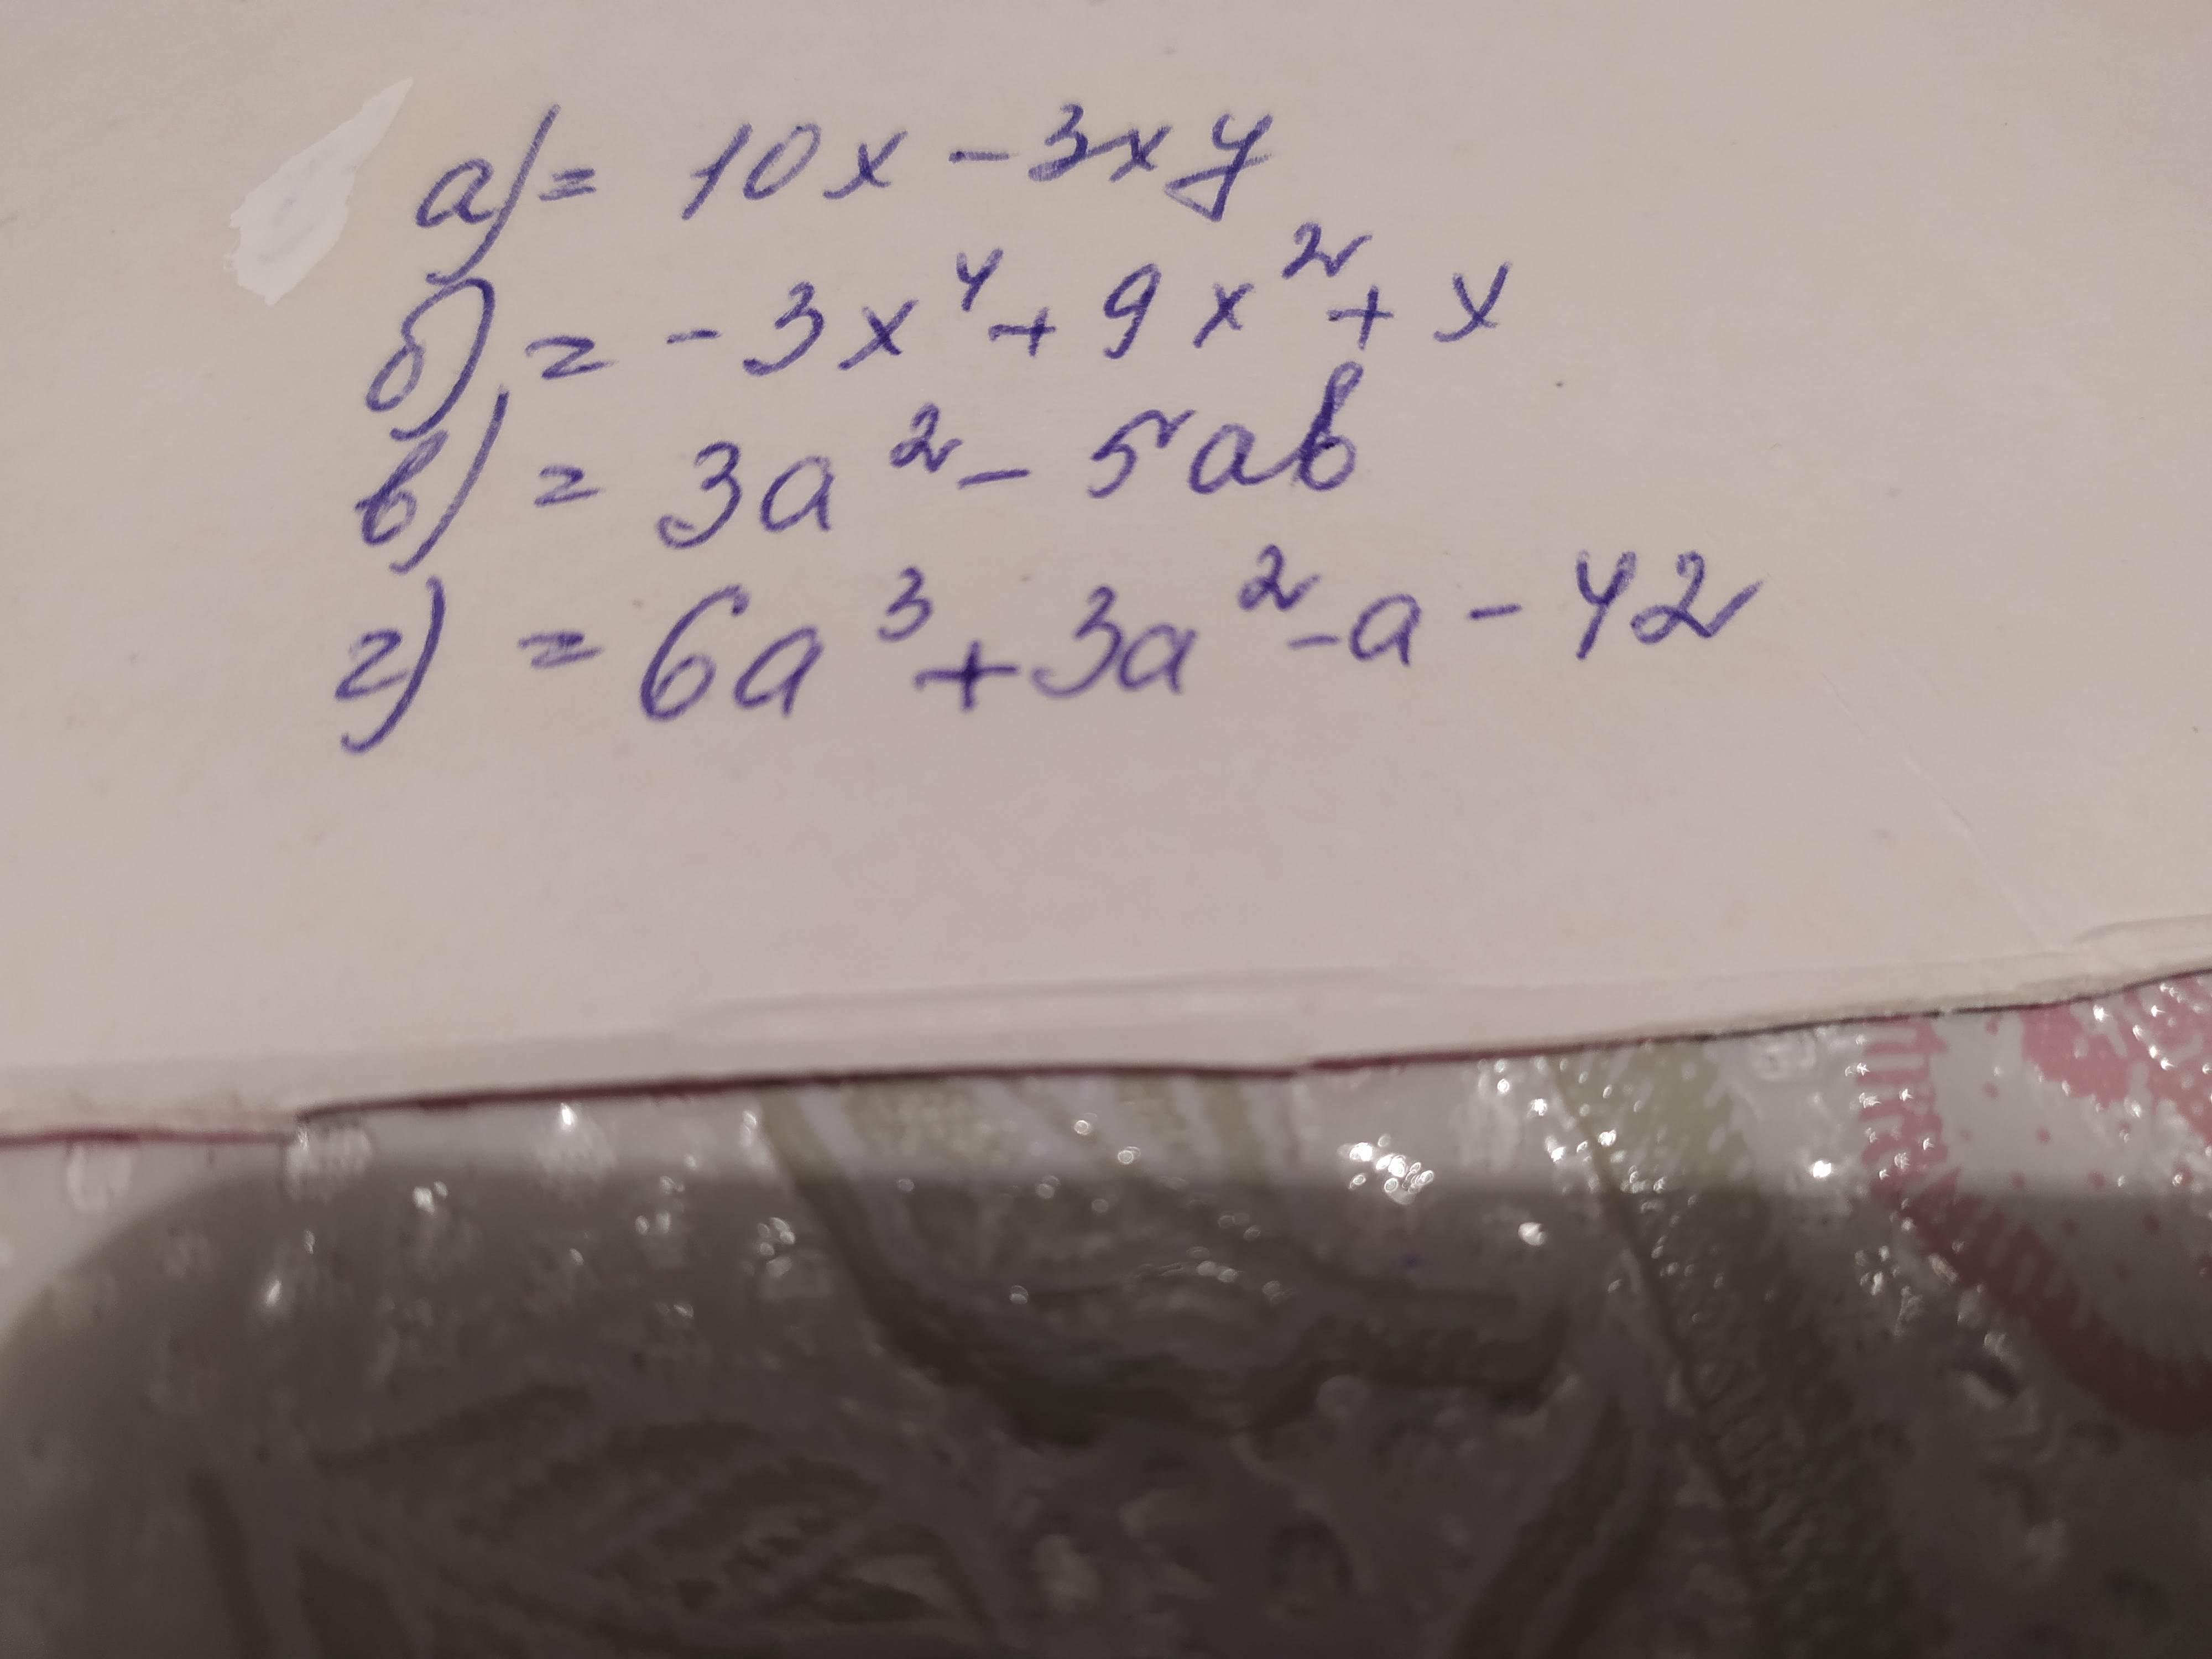 а) = 10x - 3xy
б) = - 3x⁴ + 9x² + x
в) = 3a² - 5ab
г) = 6a³ + 3a² - a - 42